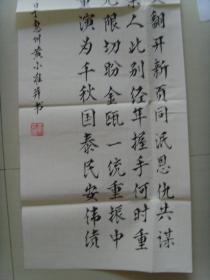 翻开新页同泯恩仇共谋
人此别经年握手何时重
无限切盼金瓯一统重振中
演为千秋国泰民安伟绩
于惠州黄小雄并书